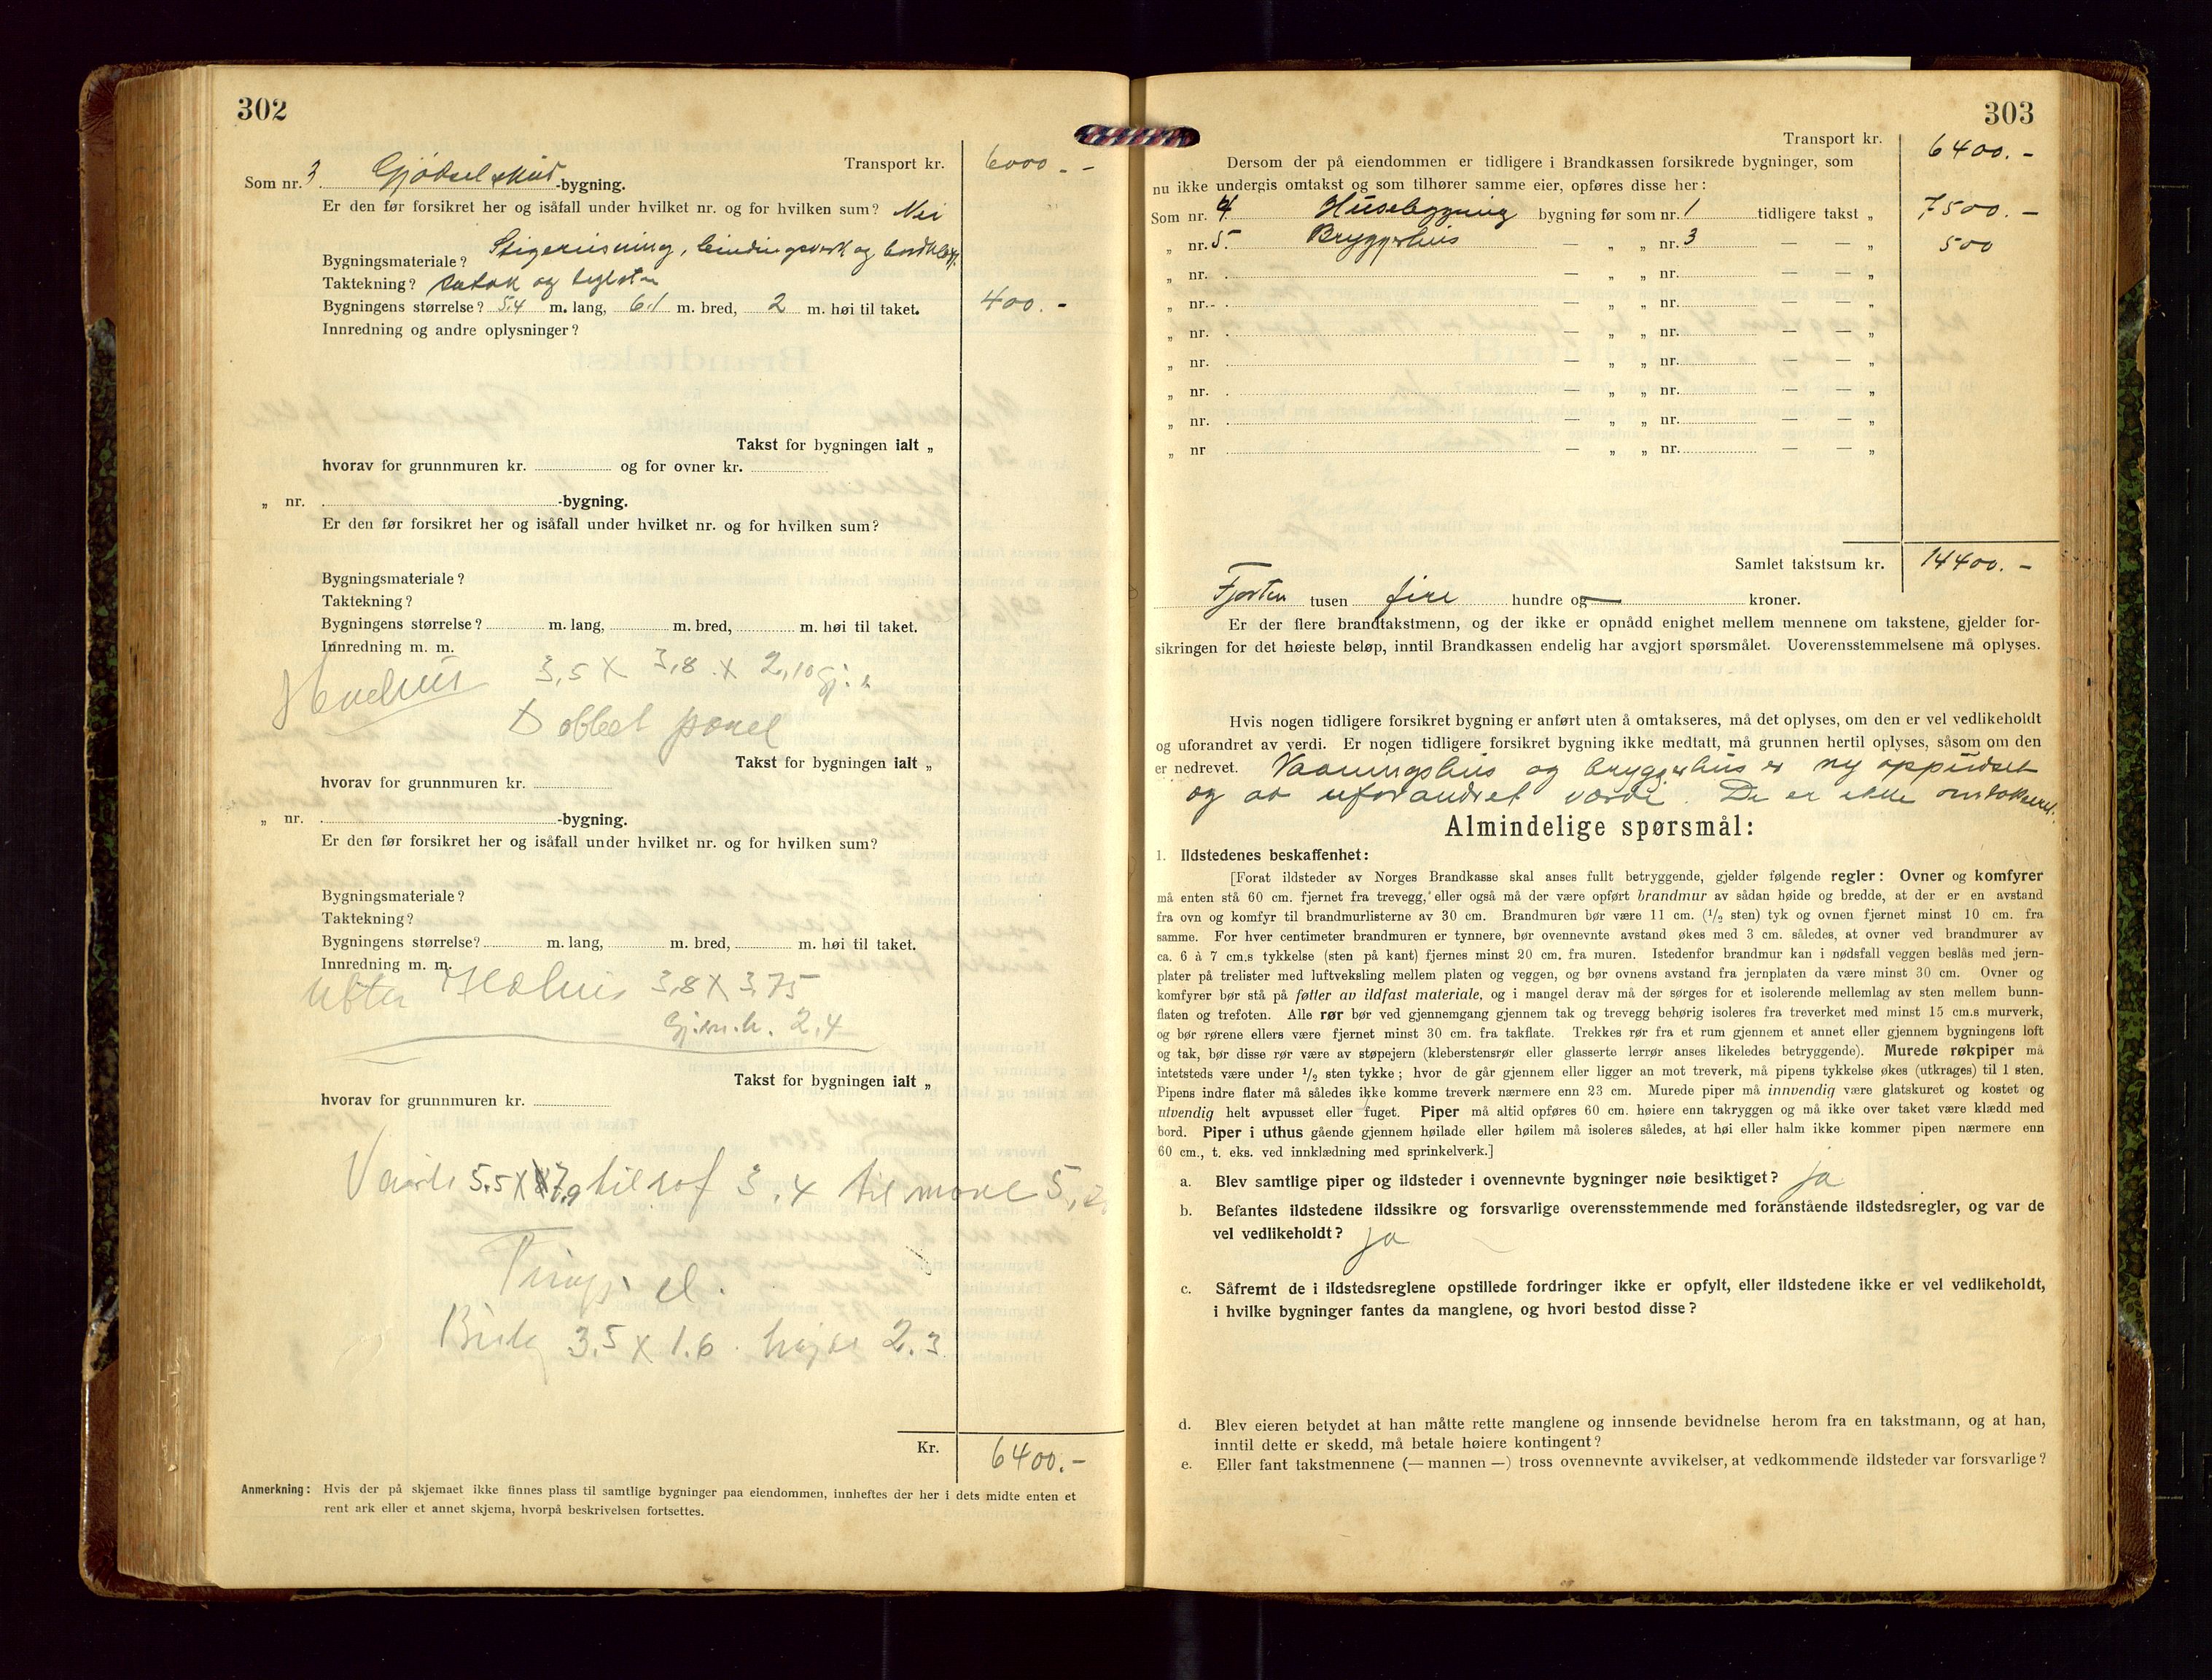 302
Transport kr. 6000.-
Som nr. 3 Gjødselskus-bygning.
Er den før forsikret her og isåfall under hvilket nr. og for hvilken sum? Nei
Bygningsmateriale? Stigereisning, bindingsverk og bordkledt.
Taktekning? sutak og teglsten
Bygningens størrelse? 5.4 m. lang, 6.1 m. bred, 2 m. høi til taket. 400.-
Innredning og andre oplysninger?
Takst for bygningen ialt „
hvorav for grunnmuren kr. og for ovner kr.
„ nr. -bygning.
Er den før forsikret her og isåfall under hvilket nr. og for hvilken sum?
Bygningsmateriale?
Taktekning?
Bygningens størrelse? m. lang, m. bred, m. høi til taket.
Innredning m. m.
3,5 X 3,8 X 2,10 gj. h
Dobbel panel
Takst for bygningen ialt „
hvorav for grunnmuren kr.
„ nr. -bygning.
Er den før forsikret her og isåfall under hvilket nr. og for hvilken sum?
Bygningsmateriale?
Taktekning?
Bygningens størrelse? m. lang, m. bred, m. høi til taket.
Innredning m. m.
3,8 X 3,75
Gj.sn.h. 2,4
Takst for bygningen ialt „
hvorav for grunnmuren kr.
5.5 X 7,9 til rof 3.4 til møne 5,2
3.5 X 1.6 højde 2.3
Kr. 6400.-
Anmerkning: Hvis der på skjemaet ikke finnes plass til samtlige bygninger paa eiendommen, innheftes der her i dets midte enten et
rent ark eller et annet skjema, hvorpå beskrivelsen fortsettes.
303
Transport kr. 6400.-
Dersom der på eiendommen er tidligere i Brandkassen forsikrede bygninger, som
nu ikke undergis omtakst og som tilhører samme eier, opføres disse her:
Som nr. 4 Husebygning bygning før som nr. 1 tidligere takst „ 7500.-
„ nr. 5. Bryggerhus — „ „ nr. 3 — — „ 500
„ nr. — „ „ nr. — — „
„ nr. — „ „ nr. — — „
„ nr. — „ „ nr. — — „
„ nr. — „ „ nr. — — „
„ nr. — „ „ nr. — — „
„ nr. — „ „ nr. — — „
„ nr — „ „ nr. — — „
Samlet takstsum kr. 14400.-
Fjorten tusen fire hundre og — kroner.
Er der flere brandtakstmenn, og der ikke er opnådd enighet mellem mennene om takstene, gjelder for-
sikringen for det høieste beløp, inntil Brandkassen endelig har avgjort spørsmålet. Uoverensstemmelsene må oplyses.
Hvis nogen tidligere forsikret bygning er anført uten å omtakseres, må det oplyses, om den er vel vedlikeholdt
og uforandret av verdi. Er nogen tidligere forsikret bygning ikke medtatt, må grunnen hertil oplyses, såsom om den
er nedrevet. Vaaningshus og bryggerhus er ny oppudset
og av uforandret værdi. De er ikke omtakseret.
Almindelige spørsmål:
1. Ildstedenes beskaffenhet:
[Forat ildsteder av Norges Brandkasse skal anses fullt betryggende, gjelder følgende regler: Ovner og komfyrer
må enten stå 60 cm. fjernet fra trevegg, eller også må der være opført brandmur av sådan høide og bredde, at der er en avstand
fra ovn og komfyr til brandmurlisterne av 30 cm. Brandmuren bør være 11 cm. (1/2 sten) tyk og ovnen fjernet minst 10 cm. fra
samme. For hver centimeter brandmuren er tynnere, bør ovennevnte avstand økes med 3 cm. således, at ovner ved brandmurer av
ca. 6 à 7 cm.s tykkelse (sten på kant) fjernes minst 20 cm. fra muren. Istedenfor brandmur kan i nødsfall veggen beslås med jern-
plater på trelister med luftveksling mellem platen og veggen, og bør ovnens avstand fra jernplaten da være minst 30 cm. Ovner og
komfyrer bør stå på føtter av ildfast materiale, og i mangel derav må der sørges for et isolerende mellemlag av sten mellem bunn-
flaten og trefoten. Alle rør bør ved gjennemgang gjennem tak og trevegg behørig isoleres fra treverket med minst 15 cm.s murverk,
og bør rørene ellers være fjernet minst 30 cm. fra takflate. Trekkes rør fra et rum gjennem et annet eller gjennem bygningens loft
og tak, bør disse rør være av støpejern (kleberstensrør eller glasserte lerrør anses likeledes betryggende). Murede røkpiper må
intetsteds være under 1/2 sten tykke; hvor de går gjennem eller ligger an mot treverk, må pipens tykkelse økes (utkrages) til 1 sten.
Pipens indre flater må således ikke komme treverk nærmere enn 23 cm. Murede piper må innvendig være glatskuret og kostet og
utvendig helt avpusset eller fuget. Piper må altid opføres 60 cm. høiere enn takryggen og må ikke over taket være klædd med
bord. Piper i uthus gående gjennem høilade eller høilem må isoleres således, at høi eller halm ikke kommer pipen nærmere enn
60 cm., t. eks. ved innklædning med sprinkelverk.]
a. Blev samtlige piper og ildsteder i ovennevnte bygninger nøie besiktiget? ja
b. Befantes ildstedene ildssikre og forsvarlige overensstemmende med foranstående ildstedsregler, og var de
vel vedlikeholdt? ja
c. Såfremt de i ildstedsreglene opstillede fordringer ikke er opfylt, eller ildstedene ikke er vel vedlikeholdt,
i hvilke bygninger fantes da manglene, og hvori bestod disse?
d. Blev eieren betydet at han måtte rette manglene og innsende bevidnelse herom fra en takstmann, og at han,
inntil dette er skedd, må betale høiere kontingent?
e. Eller fant takstmennene (— mannen —) tross ovennevnte avvikelser, at vedkommende ildsteder var forsvarlige?